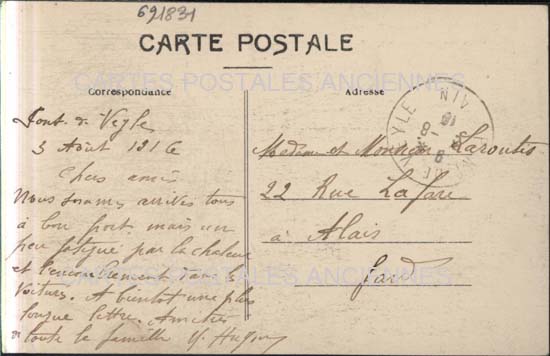 691831
CARTE POSTALE
CARTES POSTALES ANCIENNES
Correspondance
Adresse
Pont-de-Veyle
3 Août 1916
Chers amis
Nous sommes arrivés tous
à bon port mais un
peu fatigué par la chaleur
et l'encombrement dans les
voitures. A bientôt une plus
longue lettre. Amitiés
de toute la famille
Madame et Monsieur Laroutis
22 Rue Lafare
à Alais
Gard
CARTES POSTALES ANCIENNES